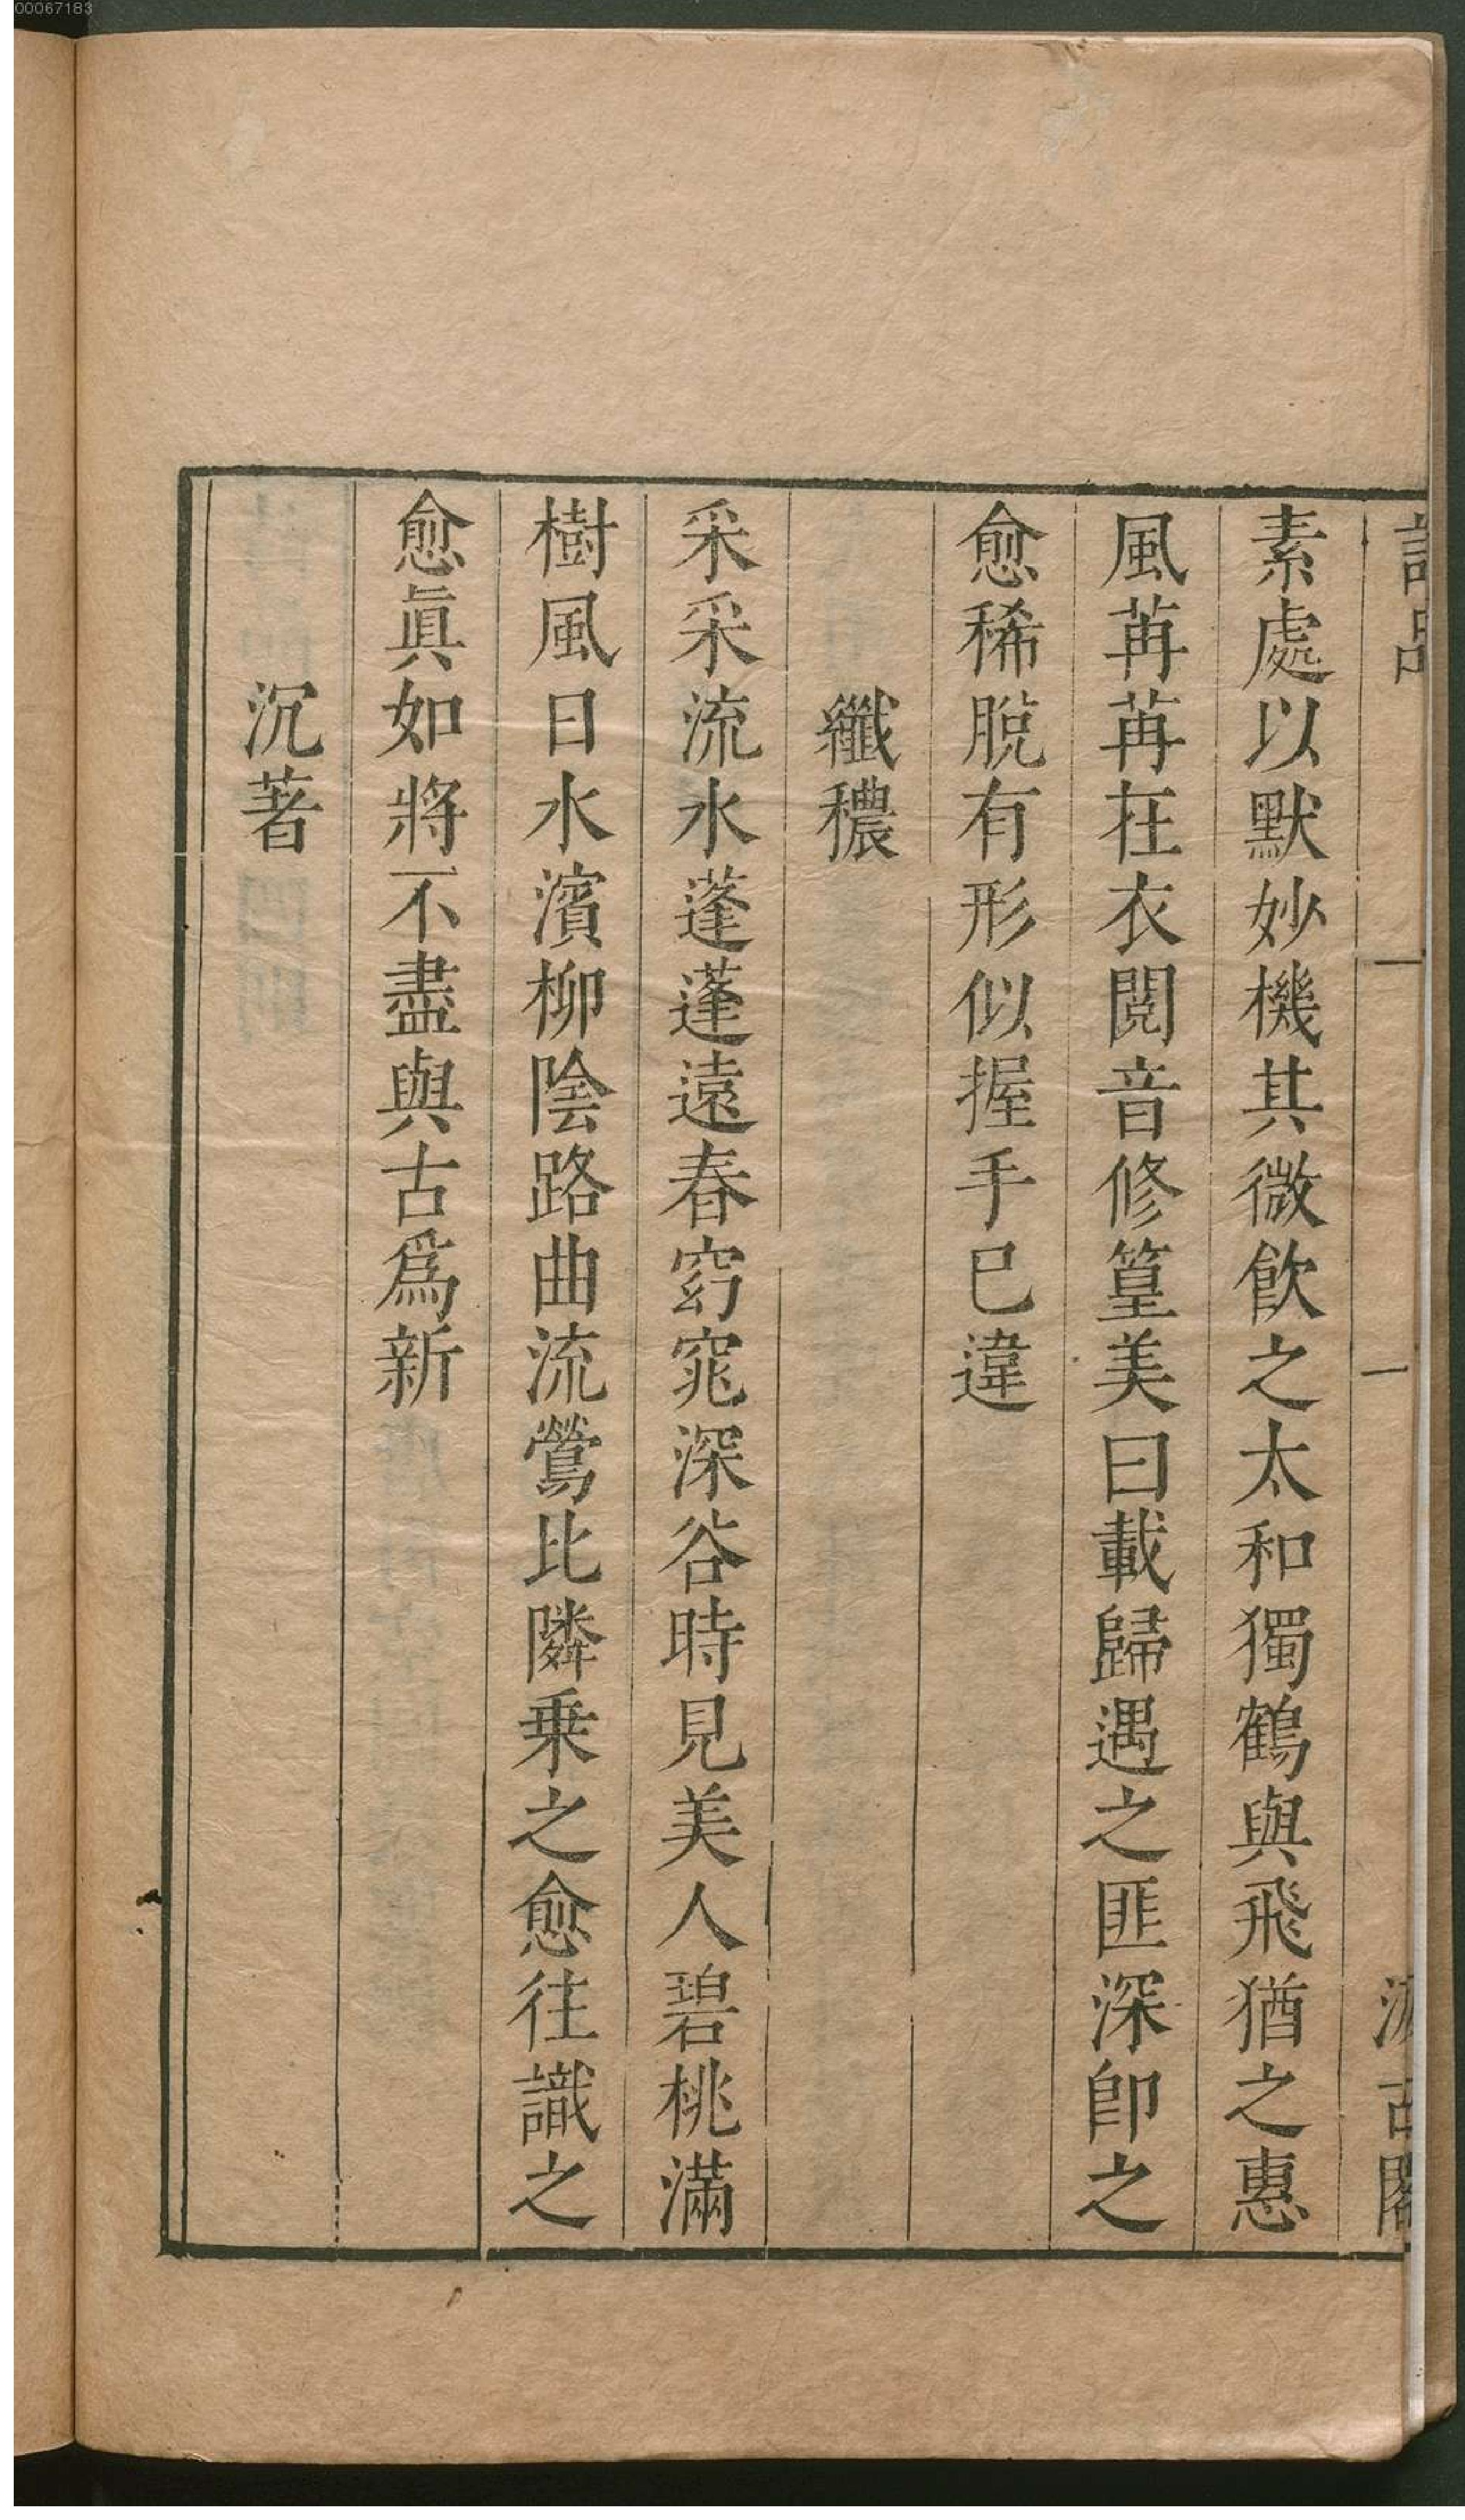 00067183
詩品
一
汲古閣
素處以默妙機其微飲之太和獨鶴與飛猶之惠
風苒苒在衣閱音修篁美曰載歸遇之匪深卽之
愈稀脫有形似握手已違
纖穠
采采流水蓬蓬遠春窈窕深谷時見美人碧桃滿
樹風日水濱柳陰路曲流鶯比隣乗之愈往識之
愈眞如將不盡與古爲新
沉著